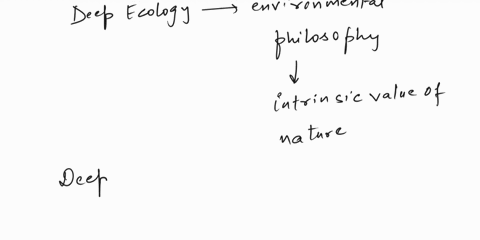 Deep Ecology → environmental
philosophy
↓
intrinsic value of
nature
Deep